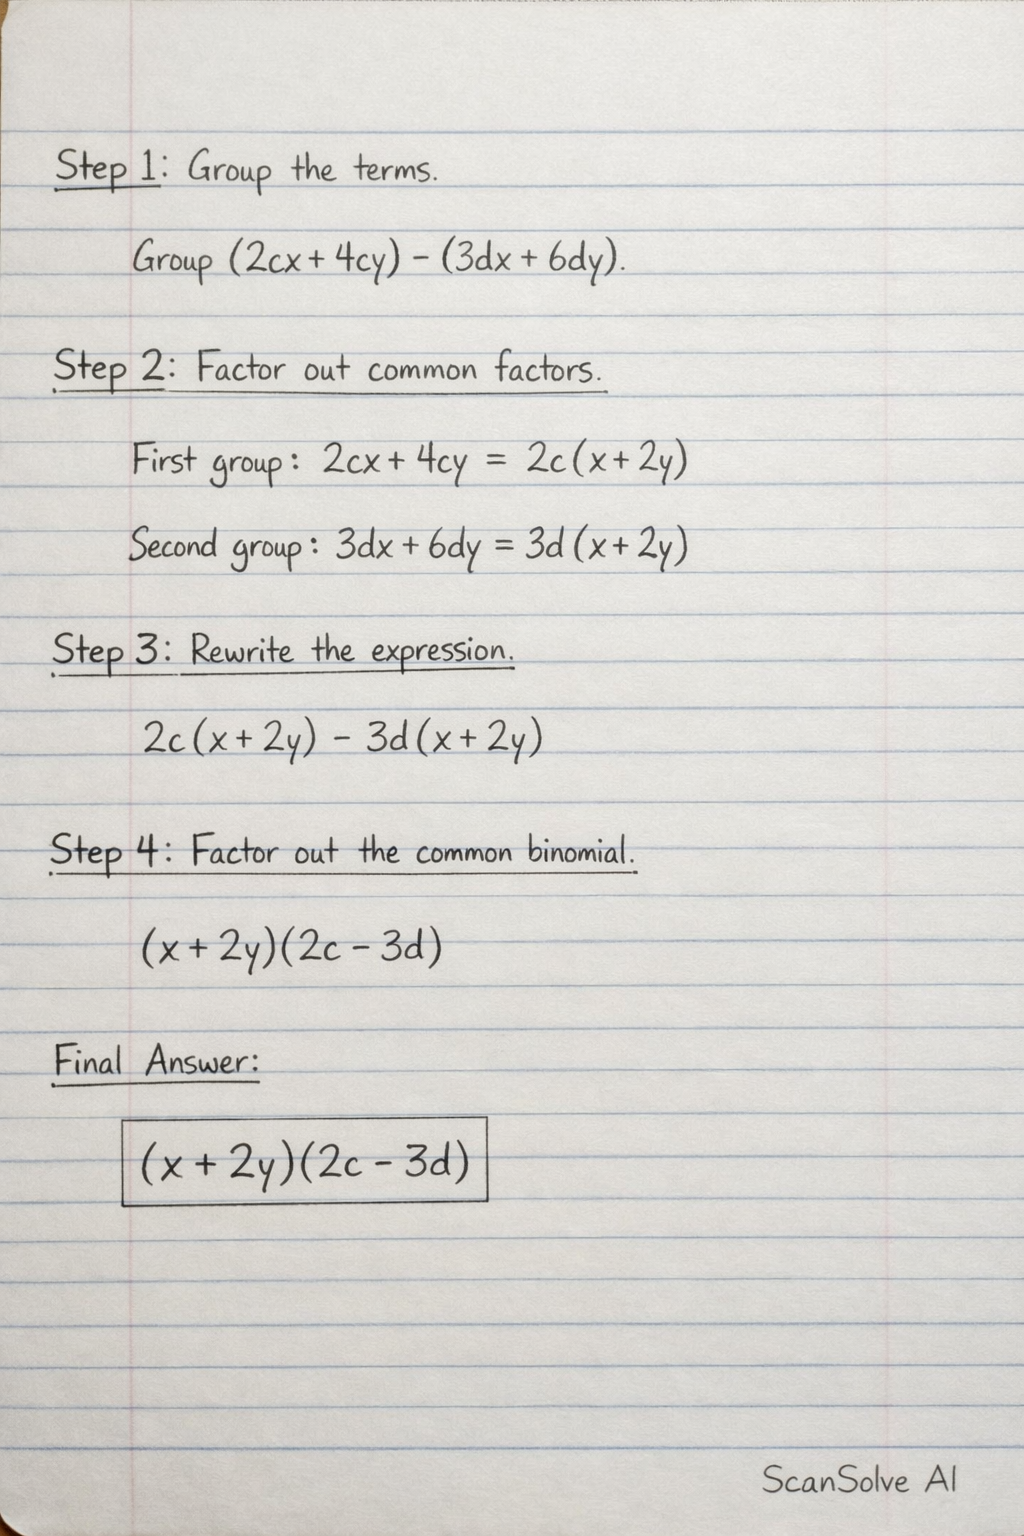 Step 1: Group the terms.
Group (2cx + 4cy) - (3dx + 6dy).
Step 2: Factor out common factors.
First group: 2cx + 4cy = 2c(x + 2y)
Second group: 3dx + 6dy = 3d(x + 2y)
Step 3: Rewrite the expression.
2c(x + 2y) - 3d(x + 2y)
Step 4: Factor out the common binomial.
(x + 2y)(2c - 3d)
Final Answer:
(x + 2y)(2c - 3d)
ScanSolve AI